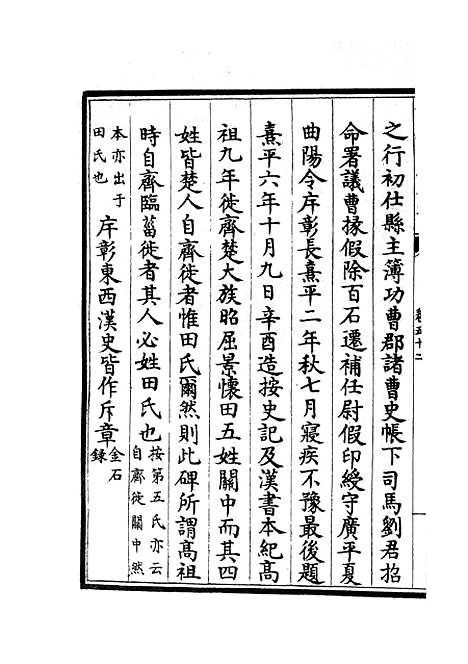 之行初仕縣主簿功曹郡諸曹史帳下司馬劉君招
命署議曹掾假除百石遷補任尉假印綬守廣平夏
曲陽令斥彰長熹平二年秋七月寢疾不豫最後題
熹平六年十月九日辛酉造按史記及漢書本紀高
祖九年徙齊楚大族昭屈景懷田五姓關中而其四
姓皆楚人自齊徙者惟田氏爾然則此碑所謂高祖
時自齊臨菑徙者其人必姓田氏也按第五氏亦云
自齊徙關中然
本亦出于
田氏也
斥彰東西漢史皆作斥章金石
錄
卷五十二